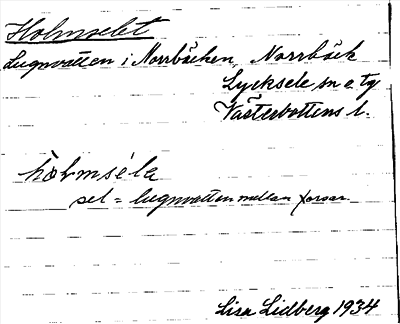 Holmselet
Lugnvatten i Norrbäcken, Norrbäck
Lycksele sn o. tg
Västerbottens l.
hòlmséla
sel = lugnvatten mellan forsar.
Lisa Lidberg 1934